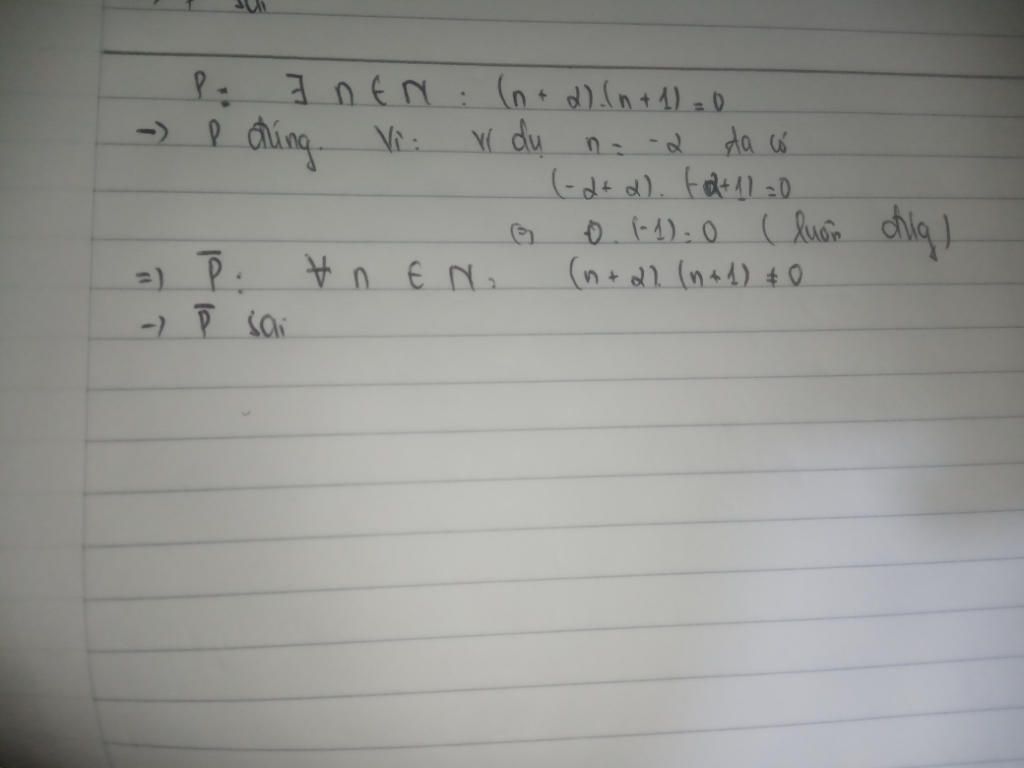 sai
P: ∃ n ∈ N : (n + 2).(n + 1) = 0
→ P đúng. Vì: ví dụ n = -2 ta có
(-2 + 2). (-2+1) = 0
⇔ 0. (-1) = 0 ( luôn đúng)
=> P̅: ∀ n ∈ N: (n + 2). (n+1) ≠ 0
→ P̅ sai